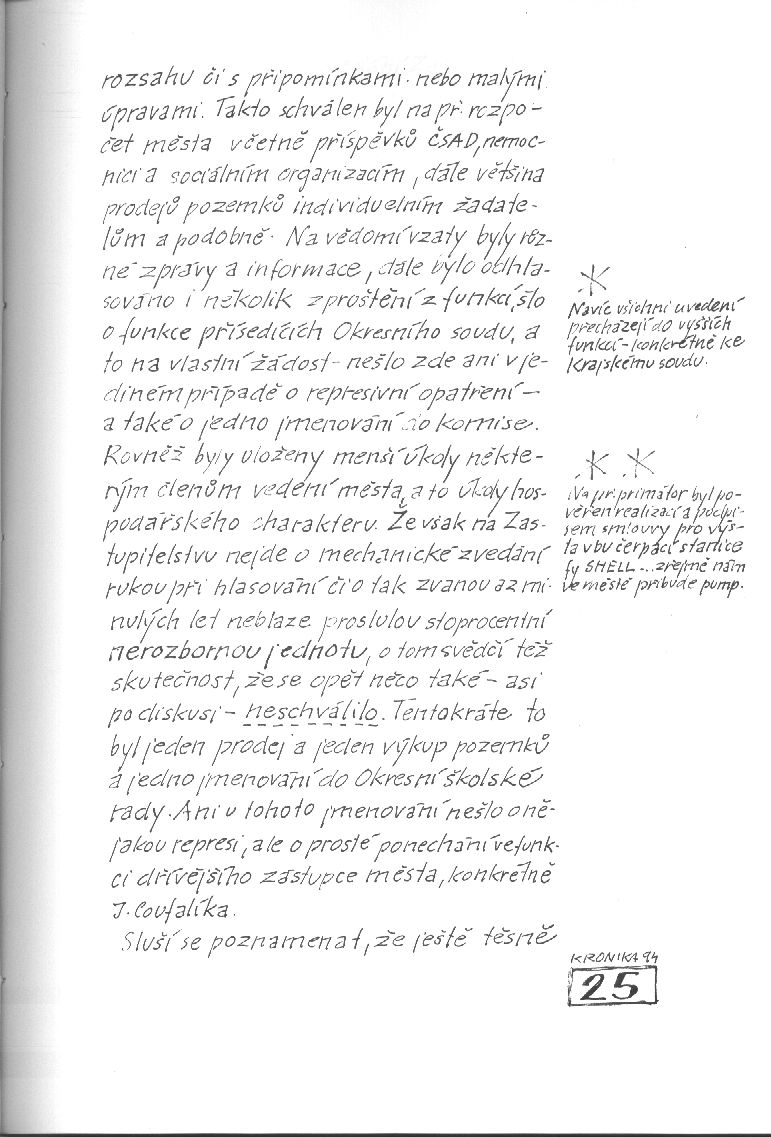 rozsahu či s připomínkami nebo malými
úpravami. Takto schválen byl na př. rozpo-
čet města včetně příspěvků ČSAD, nemoc-
nici a sociálním organizacím, dále většina
prodejů pozemků individuelním žadate-
lům a podobně. Na vědomí vzaty byly růz-
né zprávy a informace, dále bylo odhla-
sováno i několik zproštění z funkcí, šlo
o funkce přísedících Okresního soudu, a
to na vlastní žádost - nešlo zde ani v je-
diném případě o represivní opatření -
a také o jedno jmenování do komise.
Rovněž byly uloženy menší úkoly někte-
rým členům vedení města, a to úkoly hos-
podářského charakteru. Že však na Zas-
tupitelstvu nejde o mechanické zvedání
rukou při hlasování či o tak zvanou az mi-
nulých let neblaze proslulou stoprocentní
nerozbornou jednotu, o tom svědčí též
skutečnost, že se opět něco také - asi
po diskusi - neschválilo. Tentokráte to
byl jeden prodej a jeden výkup pozemků
a jedno jmenování do Okresní školské
rady. Ani u tohoto jmenování nešlo o ně-
jakou represi, ale o prosté ponechání ve funk-
ci dřívějšího zástupce města, konkrétně
J. Coufalíka.
Sluší se poznamenat, že ještě těsně
*
Navíc všichni uvedení
přecházejí do vyšších
funkcí - konkrétně ke
Krajskému soudu.
* *
Na př. primátor byl po-
věřen realizací a podpi-
sem smlouvy pro výs-
tavbu čerpací stanice
fy SHELL ... zřejmě nám
ve městě přibude pump.
KRONIKA 94
25